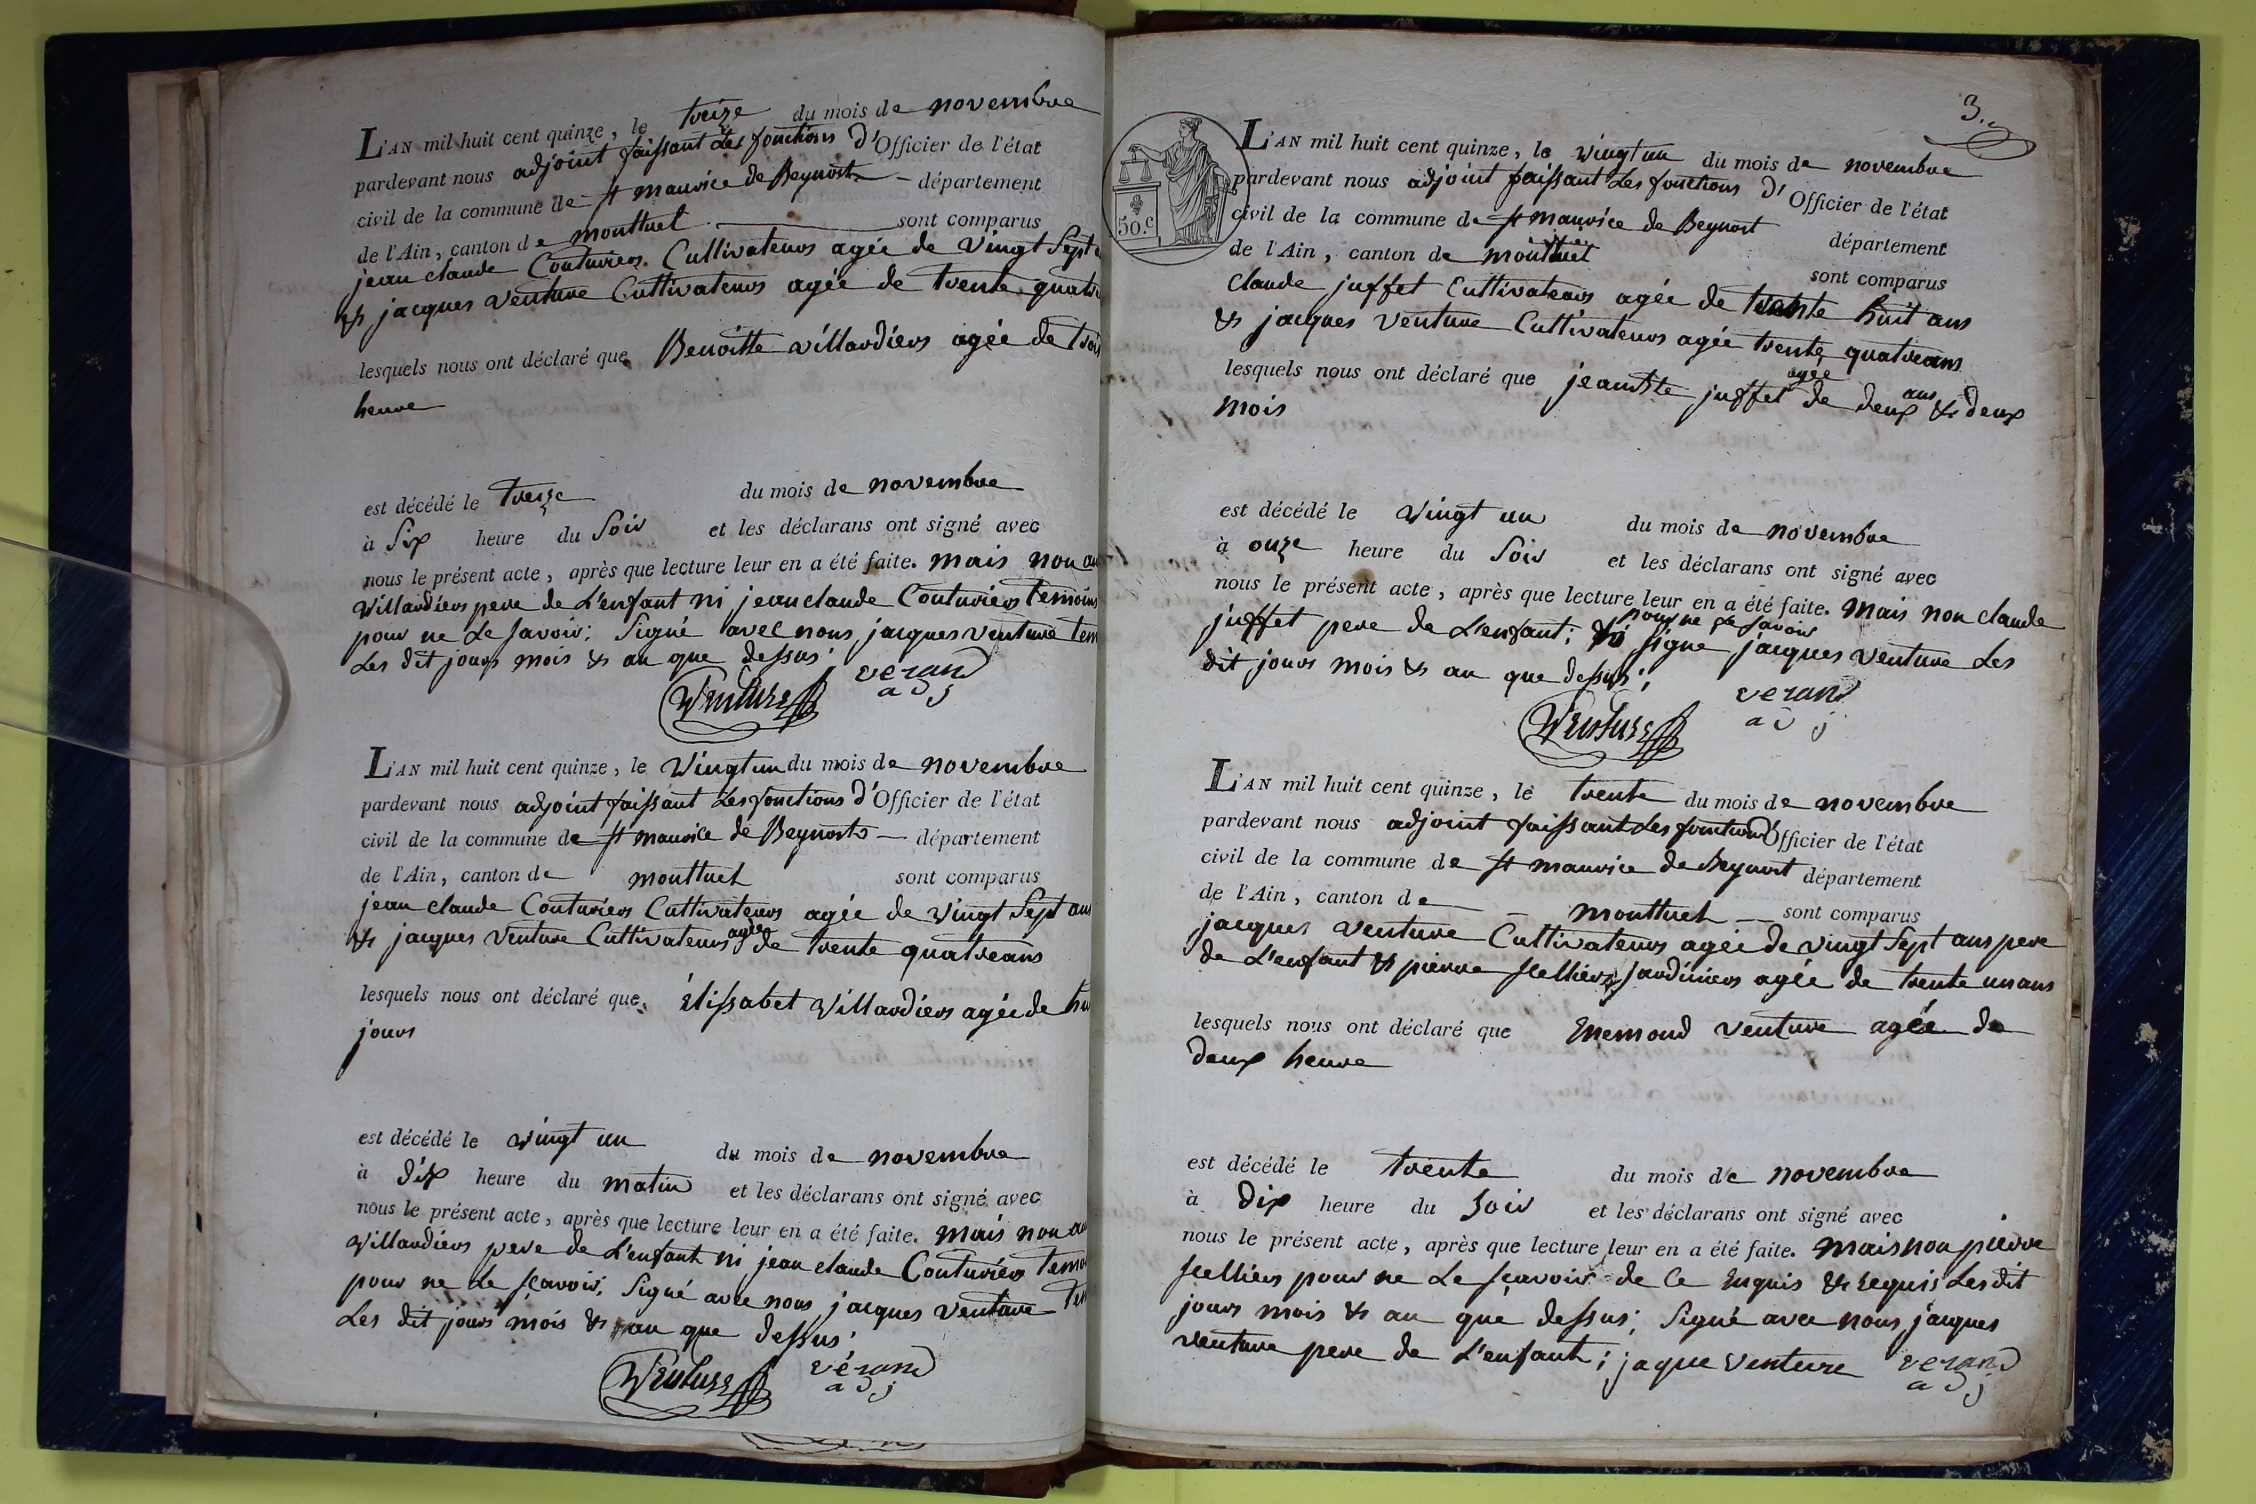 L'AN mil huit cent quinze, le treize du mois de novembre
pardevant nous adjoint faissant Les fonctions d'Officier de l'état
civil de la commune de st maurice de Beynost département
de l'Ain, canton de montluel sont comparus
jean claude Couturiers Cultivateurs agée de vingt Sept
& jacques venture Cultivateurs agée de trente quatre
lesquels nous ont déclaré que Benoitte villardiers agée de trois
heure
est décédé le treize du mois de novembre
à Six heure du Soir et les déclarans ont signé avec
nous le présent acte, après que lecture leur en a été faite. mais non
villardiers pere de L'enfant ni jean claude Couturiers temoins
pour ne Le savoir; Signé avec nous jacques venture
Les dit jours mois & an que dessus;
Venture verand
adj
L'AN mil huit cent quinze, le vingt un du mois de novembre
pardevant nous adjoint faissant Les fonctions d'Officier de l'état
civil de la commune de st maurice de Beynost département
de l'Ain, canton de montluel sont comparus
jean claude Couturiers Cultivateurs agée de vingt Sept ans
& jacques venture Cultivateurs agée de trente quatre ans
lesquels nous ont déclaré que Élissabet villardiers agée de
jours
est décédé le vingt un du mois de novembre
à dix heure du matin et les déclarans ont signé avec
nous le présent acte, après que lecture leur en a été faite. mais non
villardiers pere de L'enfant ni jean claude Couturiers
pour ne Le sçavoir; Signé avec nous jacques venture
Les dit jours mois & an que dessus;
Venture vérand
adj
3.
50.c
L'AN mil huit cent quinze, le vingt un du mois de novembre
pardevant nous adjoint faissant Les fonctions d'Officier de l'état
civil de la commune de st maurice de Beynost département
de l'Ain, canton de montluel sont comparus
Claude juffet Cultivateurs agée de trente huit ans
& jacques venture Cultivateurs agée trente quatre ans
lesquels nous ont déclaré que jeanste juffet agée de deux ans & deux
mois
est décédé le vingt un du mois de novembre
à onze heure du Soir et les déclarans ont signé avec
nous le présent acte, après que lecture leur en a été faite. mais non claude
juffet pere de L'enfant; pour ne Le savoir signe jacques venture Les
dit jours mois & an que dessus;
Venture verand
adj
L'AN mil huit cent quinze, le trente du mois de novembre
pardevant nous adjoint faissant Les fonctions d'Officier de l'état
civil de la commune de st maurice de Beynost département
de l'Ain, canton de montluel sont comparus
jacques venture Cultivateurs agée de vingt Sept ans pere
de L'enfant & pierre stelliers jardiniers agée de trente un ans
lesquels nous ont déclaré que Enemond venture agée de
deux heure
est décédé le trente du mois de novembre
à dix heure du Soir et les déclarans ont signé avec
nous le présent acte, après que lecture leur en a été faite. mais non pierre
stelliers pour ne Le sçavoir de Ce Enquis & requis Les dit
jours mois & an que dessus; Signé avec nous jacques
venture pere de L'enfant; jaque venture verand
adj